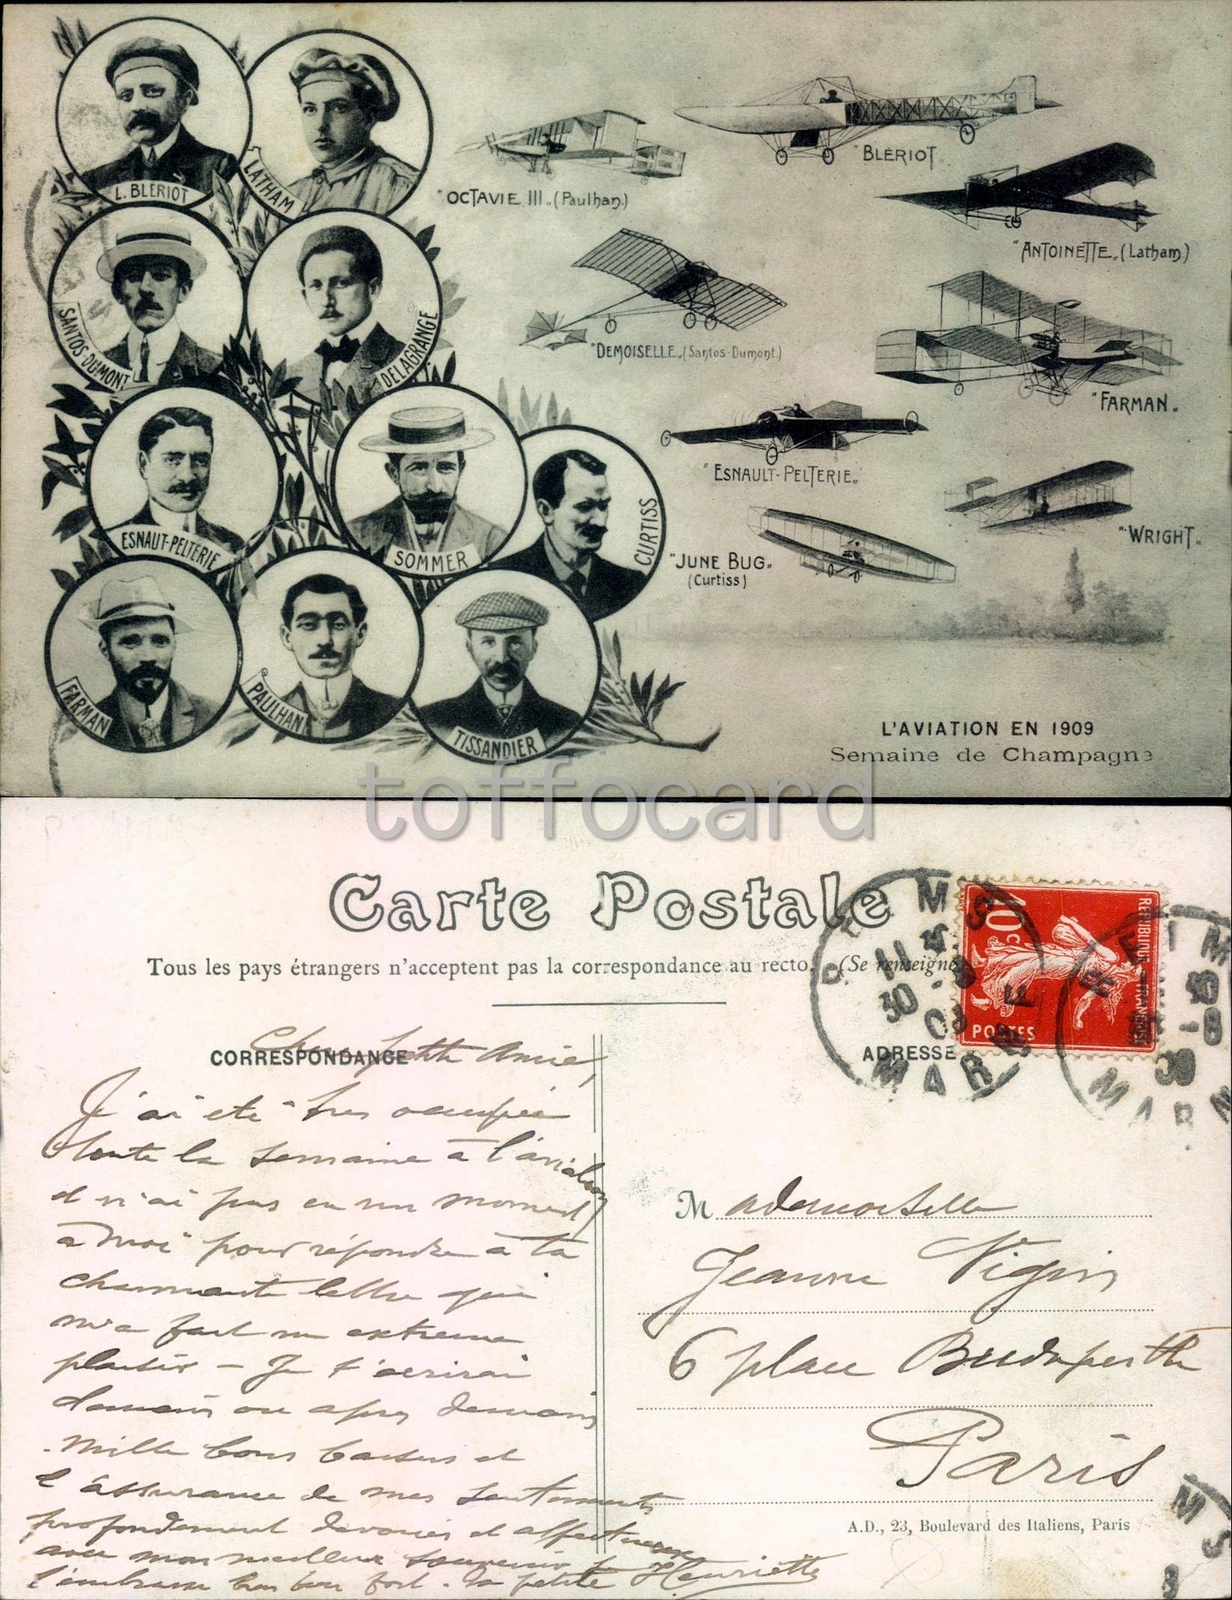 L. BLERIOT
LATHAM
SANTOS-DUMONT
DELAGRANGE
ESNAUT-PELTERIE
SOMMER
CURTISS
FARMAN
PAULHAN
TISSANDIER
"OCTAVIE III" (Paulhan)
"BLÉRIOT"
"ANTOINETTE" (Latham)
"DEMOISELLE" (Santos-Dumont)
"FARMAN"
"ESNAULT-PELTERIE"
"WRIGHT"
"JUNE BUG"
(Curtiss)
L'AVIATION EN 1909
Semaine de Champagne
toffocard
Carte Postale
Tous les pays étrangers n'acceptent pas la correspondance au recto. (Se renseigne
CORRESPONDANCE
Chère petite Amie,
J'ai été très occupée
toute la semaine à l'aviation
et n'ai pas eu un moment
à moi pour répondre à ta
charmante lettre qui
m'a fait un extrême
plaisir – Je t'écrirai
demain ou après demain
Mille bons baisers et
l'assurance de mes sentiments
profondément dévoués et affectueux
avec mon meilleur souvenir
t'embrasse bien fort. ta petite Henriette
ADRESSE
REIMS
MARNE
30 -8
09
10c
REPUBLIQUE FRANÇAISE
POSTES
REIMS
MARNE
Mademoiselle
Jeanne Vigin
6 place Budapesth
Paris
A.D., 23, Boulevard des Italiens, Paris